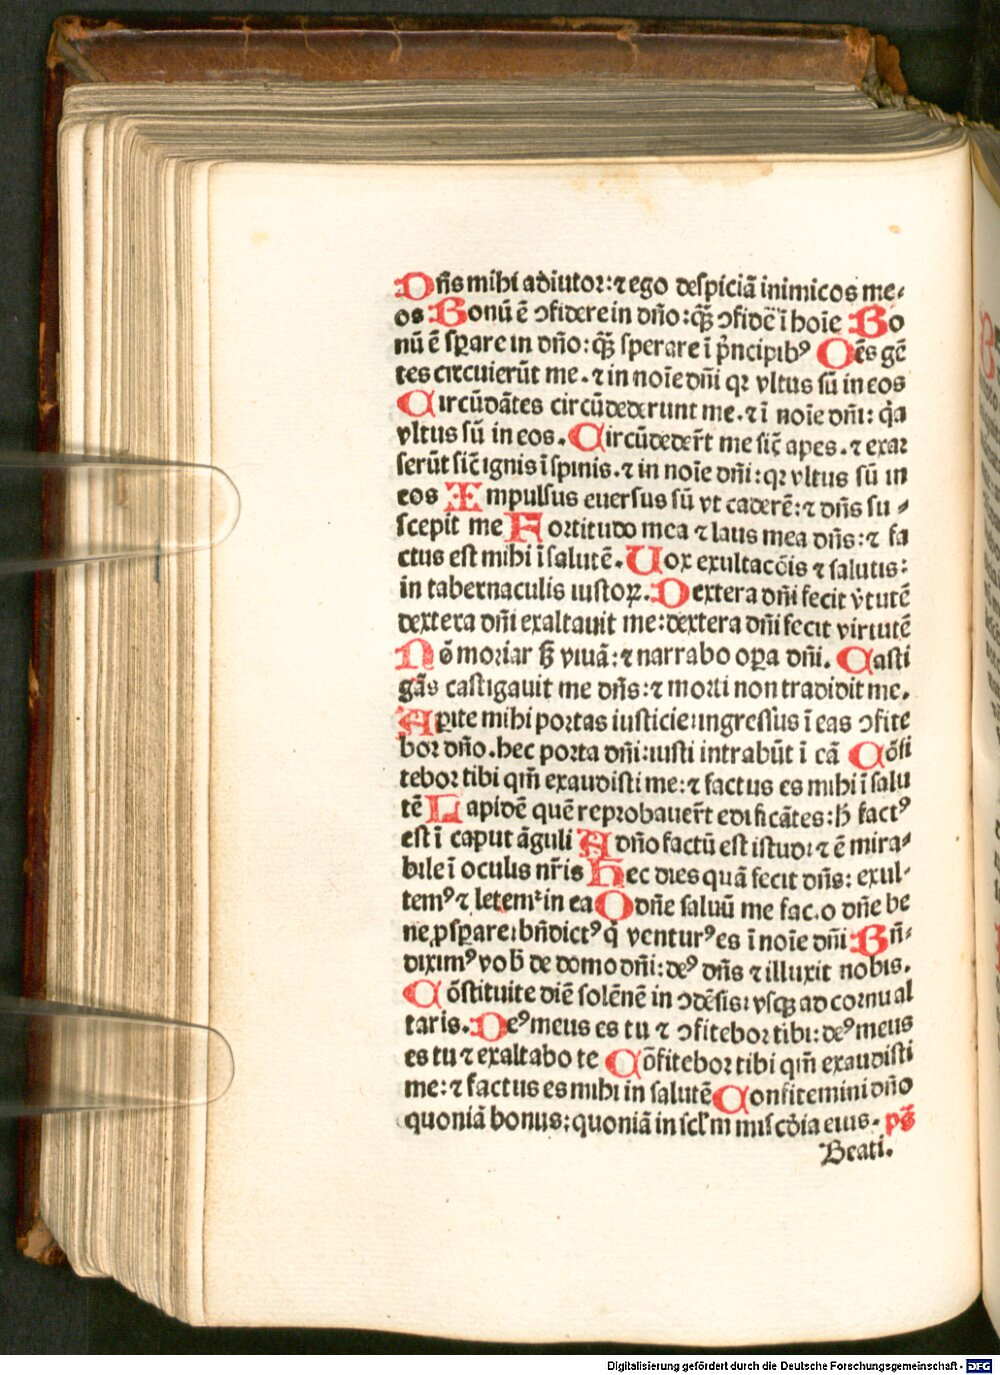 Dñs mihi adiutor: ⁊ ego despiciã inimicos me⸗
os Bonũ ẽ ↄfidere in dño: q̃ȝ ↄfidẽ ĩ hoĩe Bo
nũ ẽ sꝑare in dño: q̃ȝ sperare ĩ p̃ncipibꝰ Oẽs gẽ
tes circuierũt me. ⁊ in noĩe dñi qꝛ vltus sũ in eos
Circũdãtes circũdederunt me. ⁊ ĩ noĩe dñi: q̃a
vltus sũ in eos. Circũdeder̃t me sic̃ apes. ⁊ exar
serũt sic̃ ignis ĩ spinis. ⁊ in noĩe dñi: qꝛ vltus sũ in
eos Impulsus euersus sũ vt caderẽ: ⁊ dñs su⸗
scepit me Fortitudo mea ⁊ laus mea dñs: ⁊ fa
ctus est mihi ĩ salutẽ. Uox exultacõis ⁊ salutis:
in tabernaculis iustoꝝ. Dextera dñi fecit v̾tutẽ
dextera dñi exaltauit me: dextera dñi fecit virtutẽ
Nõ moriar sȝ viuã: ⁊ narrabo oꝑa dñi. Casti
gãs castigauit me dñs: ⁊ morti non tradidit me.
Aꝑite mihi portas iusticie: ingressus ĩ eas ↄfite
bor dño. hec porta dñi: iusti intrabũt ĩ eã Cõfi
tebor tibi qm̃ exaudisti me: ⁊ factus es mihi ĩ salu
tẽ Lapidẽ quẽ reprobauer̃t edificãtes: h̃ factꝰ
est ĩ caput ãguli A dño factũ est istud: ⁊ ẽ mira⸗
bile ĩ oculis nr̃is Hec dies quã fecit dñs: exul⸗
temꝰ ⁊ letemᷣ in ea O dñe saluũ me fac. o dñe be
ne ꝓsꝑare: bñdictꝰ q̇ venturꝰ es ĩ noĩe dñi Bñ⸗
diximꝰ vob̃ de domo dñi: deꝰ dñs ⁊ illuxit nobis.
Cõstituite diẽ solẽnẽ in ↄdẽsis: vsqȝ ad cornu al
taris. Deꝰ meus es tu ⁊ ↄfitebor tibi: deꝰ meus
es tu ⁊ exaltabo te Cõfitebor tibi qm̃ exaudisti
me: ⁊ factus es mihi in salutẽ Confitemini dño
quoniã bonus: quoniã in scl̃m mis̃cõdia eius. ps̃
Beati.
Digitalisierung gefördert durch die Deutsche Forschungsgemeinschaft - DFG